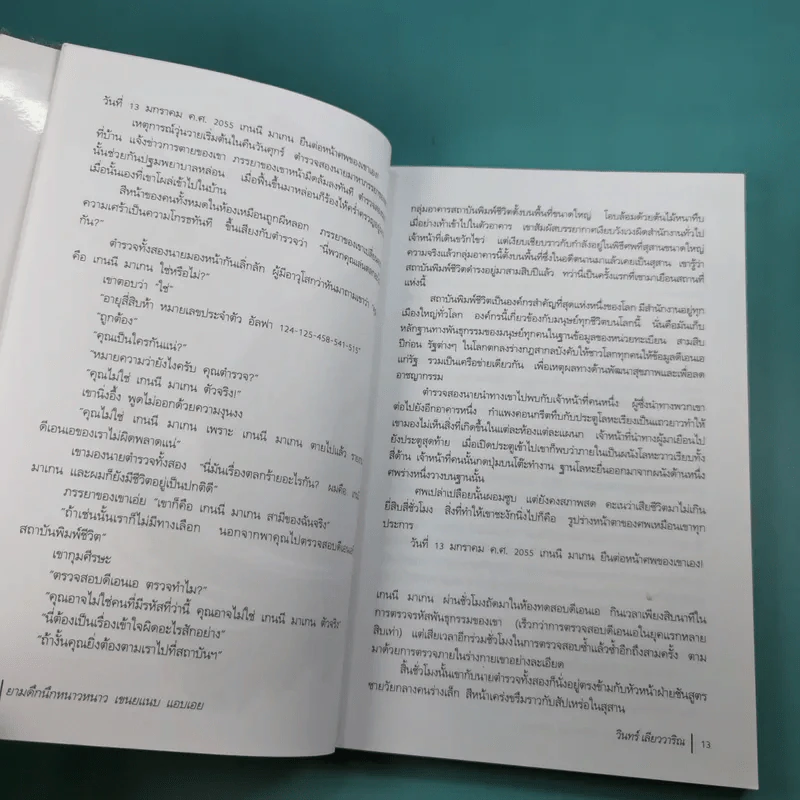 วันที่ 13 มกราคม ค.ศ. 2055 เกนนี มาเกน ยืนต่อหน้าศพของเขาเอง!
เหตุการณ์วุ่นวายเริ่มต้นในคืนวันศุกร์ ตำรวจสองนายมาหาภรรยาของเขา
ที่บ้าน แจ้งข่าวการตายของเขา ภรรยาของเขาหน้ามืดล้มลงทันที ตำรวจสองนาย
นั้นช่วยกันปฐมพยาบาลหล่อน เมื่อฟื้นขึ้นมาหล่อนก็ร้องไห้คร่ำครวญ
เมื่อนั้นเองที่เขาโผล่เข้าไปในบ้าน
สีหน้าของคนทั้งหมดในห้องเหมือนถูกผีหลอก ภรรยาของเขาเปลี่ยน
ความเศร้าเป็นความโกรธทันที ขึ้นเสียงกับตำรวจว่า "นี่พวกคุณเล่นตลก
กัน?"
ตำรวจทั้งสองนายมองหน้ากันเลิ่กลั่ก ผู้มีอาวุโสกว่าหันมาถามเขาว่า
คือ เกนนี มาเกน ใช่หรือไม่?"
เขาตอบว่า "ใช่"
"อายุสี่สิบห้า หมายเลขประจำตัว อัลฟา 124-125-458-541-515"
"ถูกต้อง"
"คุณเป็นใครกันแน่?"
"หมายความว่ายังไงครับ คุณตำรวจ?"
"คุณไม่ใช่ เกนนี มาเกน ตัวจริง!"
เขานิ่งอึ้ง พูดไม่ออกด้วยความงุนงง
"คุณไม่ใช่ เกนนี มาเกน เพราะ เกนนี มาเกน ตายไปแล้ว
ดีเอนเอของเราไม่ผิดพลาดแน่"
เขามองนายตำรวจทั้งสอง "นี่มันเรื่องตลกร้ายอะไรกัน? ผมคือ เกนนี
มาเกน และผมก็ยังมีชีวิตอยู่เป็นปกติดี"
ภรรยาของเขาเอ่ย "เขาก็คือ เกนนี มาเกน สามีของฉันจริง"
"ถ้าเช่นนั้นเราก็ไม่มีทางเลือก นอกจากพาคุณไปตรวจสอบดีเอนเอที่
สถาบันพิมพ์ชีวิต"
เขากุมศีรษะ
"ตรวจสอบดีเอนเอ ตรวจทำไม?"
"คุณอาจไม่ใช่คนที่มีรหัสที่ว่านี้ คุณอาจไม่ใช่ เกนนี มาเกน ตัวจริง"
"นี่ต้องเป็นเรื่องเข้าใจผิดอะไรสักอย่าง"
"ถ้างั้นคุณยิ่งต้องตามเราไปที่สถาบันฯ"
ยามดึกนึกหนาวหนาว เขนยแนบ แอบเอย
กลุ่มอาคารสถาบันพิมพ์ชีวิตตั้งบนพื้นที่ขนาดใหญ่ โอบล้อมด้วยต้นไม้หนาทึบ
เมื่อย่างเท้าเข้าไปในตัวอาคาร เขาสัมผัสบรรยากาศเงียบวังเวงผิดสำนักงานทั่วไป
เจ้าหน้าที่เดินขวักไขว่ แต่เงียบเชียบราวกับกำลังอยู่ในพิธีศพที่สุสานขนาดใหญ่
ความจริงแล้วกลุ่มอาคารนี้ตั้งบนพื้นที่ซึ่งในอดีตนานมาแล้วเคยเป็นสุสาน เขารู้ว่า
สถาบันพิมพ์ชีวิตดำรงอยู่มาสามสิบปีแล้ว ทว่านี่เป็นครั้งแรกที่เขามาเยือนสถานที่
แห่งนี้
สถาบันพิมพ์ชีวิตเป็นองค์กรสำคัญที่สุดแห่งหนึ่งของโลก มีสำนักงานอยู่ทุก
เมืองใหญ่ทั่วโลก องค์กรนี้เกี่ยวข้องกับมนุษย์ทุกชีวิตบนโลกนี้ นั่นคือมันเก็บ
หลักฐานทางพันธุกรรมของมนุษย์ทุกคนในฐานข้อมูลของหน่วยทะเบียน สามสิบ
ปีก่อน รัฐต่างๆ ในโลกตกลงร่างกฎสากลบังคับให้ชาวโลกทุกคนให้ข้อมูลดีเอนเอ
แก่รัฐ รวมเป็นเครือข่ายเดียวกัน เพื่อเหตุผลทางด้านพัฒนาสุขภาพและเพื่อลด
อาชญากรรม
ตำรวจสองนายนำทางเขาไปพบกับเจ้าหน้าที่คนหนึ่ง ผู้ซึ่งนำทางพวกเขา
ต่อไปยังอีกอาคารหนึ่ง กำแพงคอนกรีตทึบกับประตูโลหะเรียงเป็นแถวยาวทำให้
เขามองไม่เห็นสิ่งที่เกิดขึ้นในแต่ละห้องแต่ละแผนก เจ้าหน้าที่นำทางผู้มาเยือนไป
ยังประตูสุดท้าย เมื่อเปิดประตูเข้าไปเขาก็พบว่าภายในเป็นผนังโลหะวาวเรียบทั้ง
สี่ด้าน เจ้าหน้าที่คนนั้นกดปุ่มบนโต๊ะทำงาน ฐานโลหะยื่นออกมาจากผนังด้านหนึ่ง
ศพร่างหนึ่งวางบนฐานนั้น
ศพเปล่าเปลือยนั้นผอมซูบ แต่ยังคงสภาพสด คะเนว่าเสียชีวิตมาไม่เกิน
ยี่สิบสี่ชั่วโมง สิ่งที่ทำให้เขาชะงักนิ่งไปก็คือ รูปร่างหน้าตาของศพเหมือนเขาทุก
ประการ
วันที่ 13 มกราคม ค.ศ. 2055 เกนนี มาเกน ยืนต่อหน้าศพของเขาเอง!
เกนนี มาเกน ผ่านชั่วโมงถัดมาในห้องทดสอบดีเอนเอ กินเวลาเพียงสิบนาทีใน
การตรวจรหัสพันธุกรรมของเขา (เร็วกว่าการตรวจสอบดีเอนเอในยุคแรกหลาย
สิบเท่า) แต่เสียเวลาอีกร่วมชั่วโมงในการตรวจสอบซ้ำแล้วซ้ำอีกถึงสามครั้ง ตาม
มาด้วยการตรวจภายในร่างกายเขาอย่างละเอียด
สิ้นชั่วโมงนั้นเขากับนายตำรวจทั้งสองก็นั่งอยู่ตรงข้ามกับหัวหน้าฝ่ายชันสูตร
ชายวัยกลางคนร่างเล็ก สีหน้าเคร่งขรึมราวกับสัปเหร่อในสุสาน
วินทร์ เลียววาริณ | 13